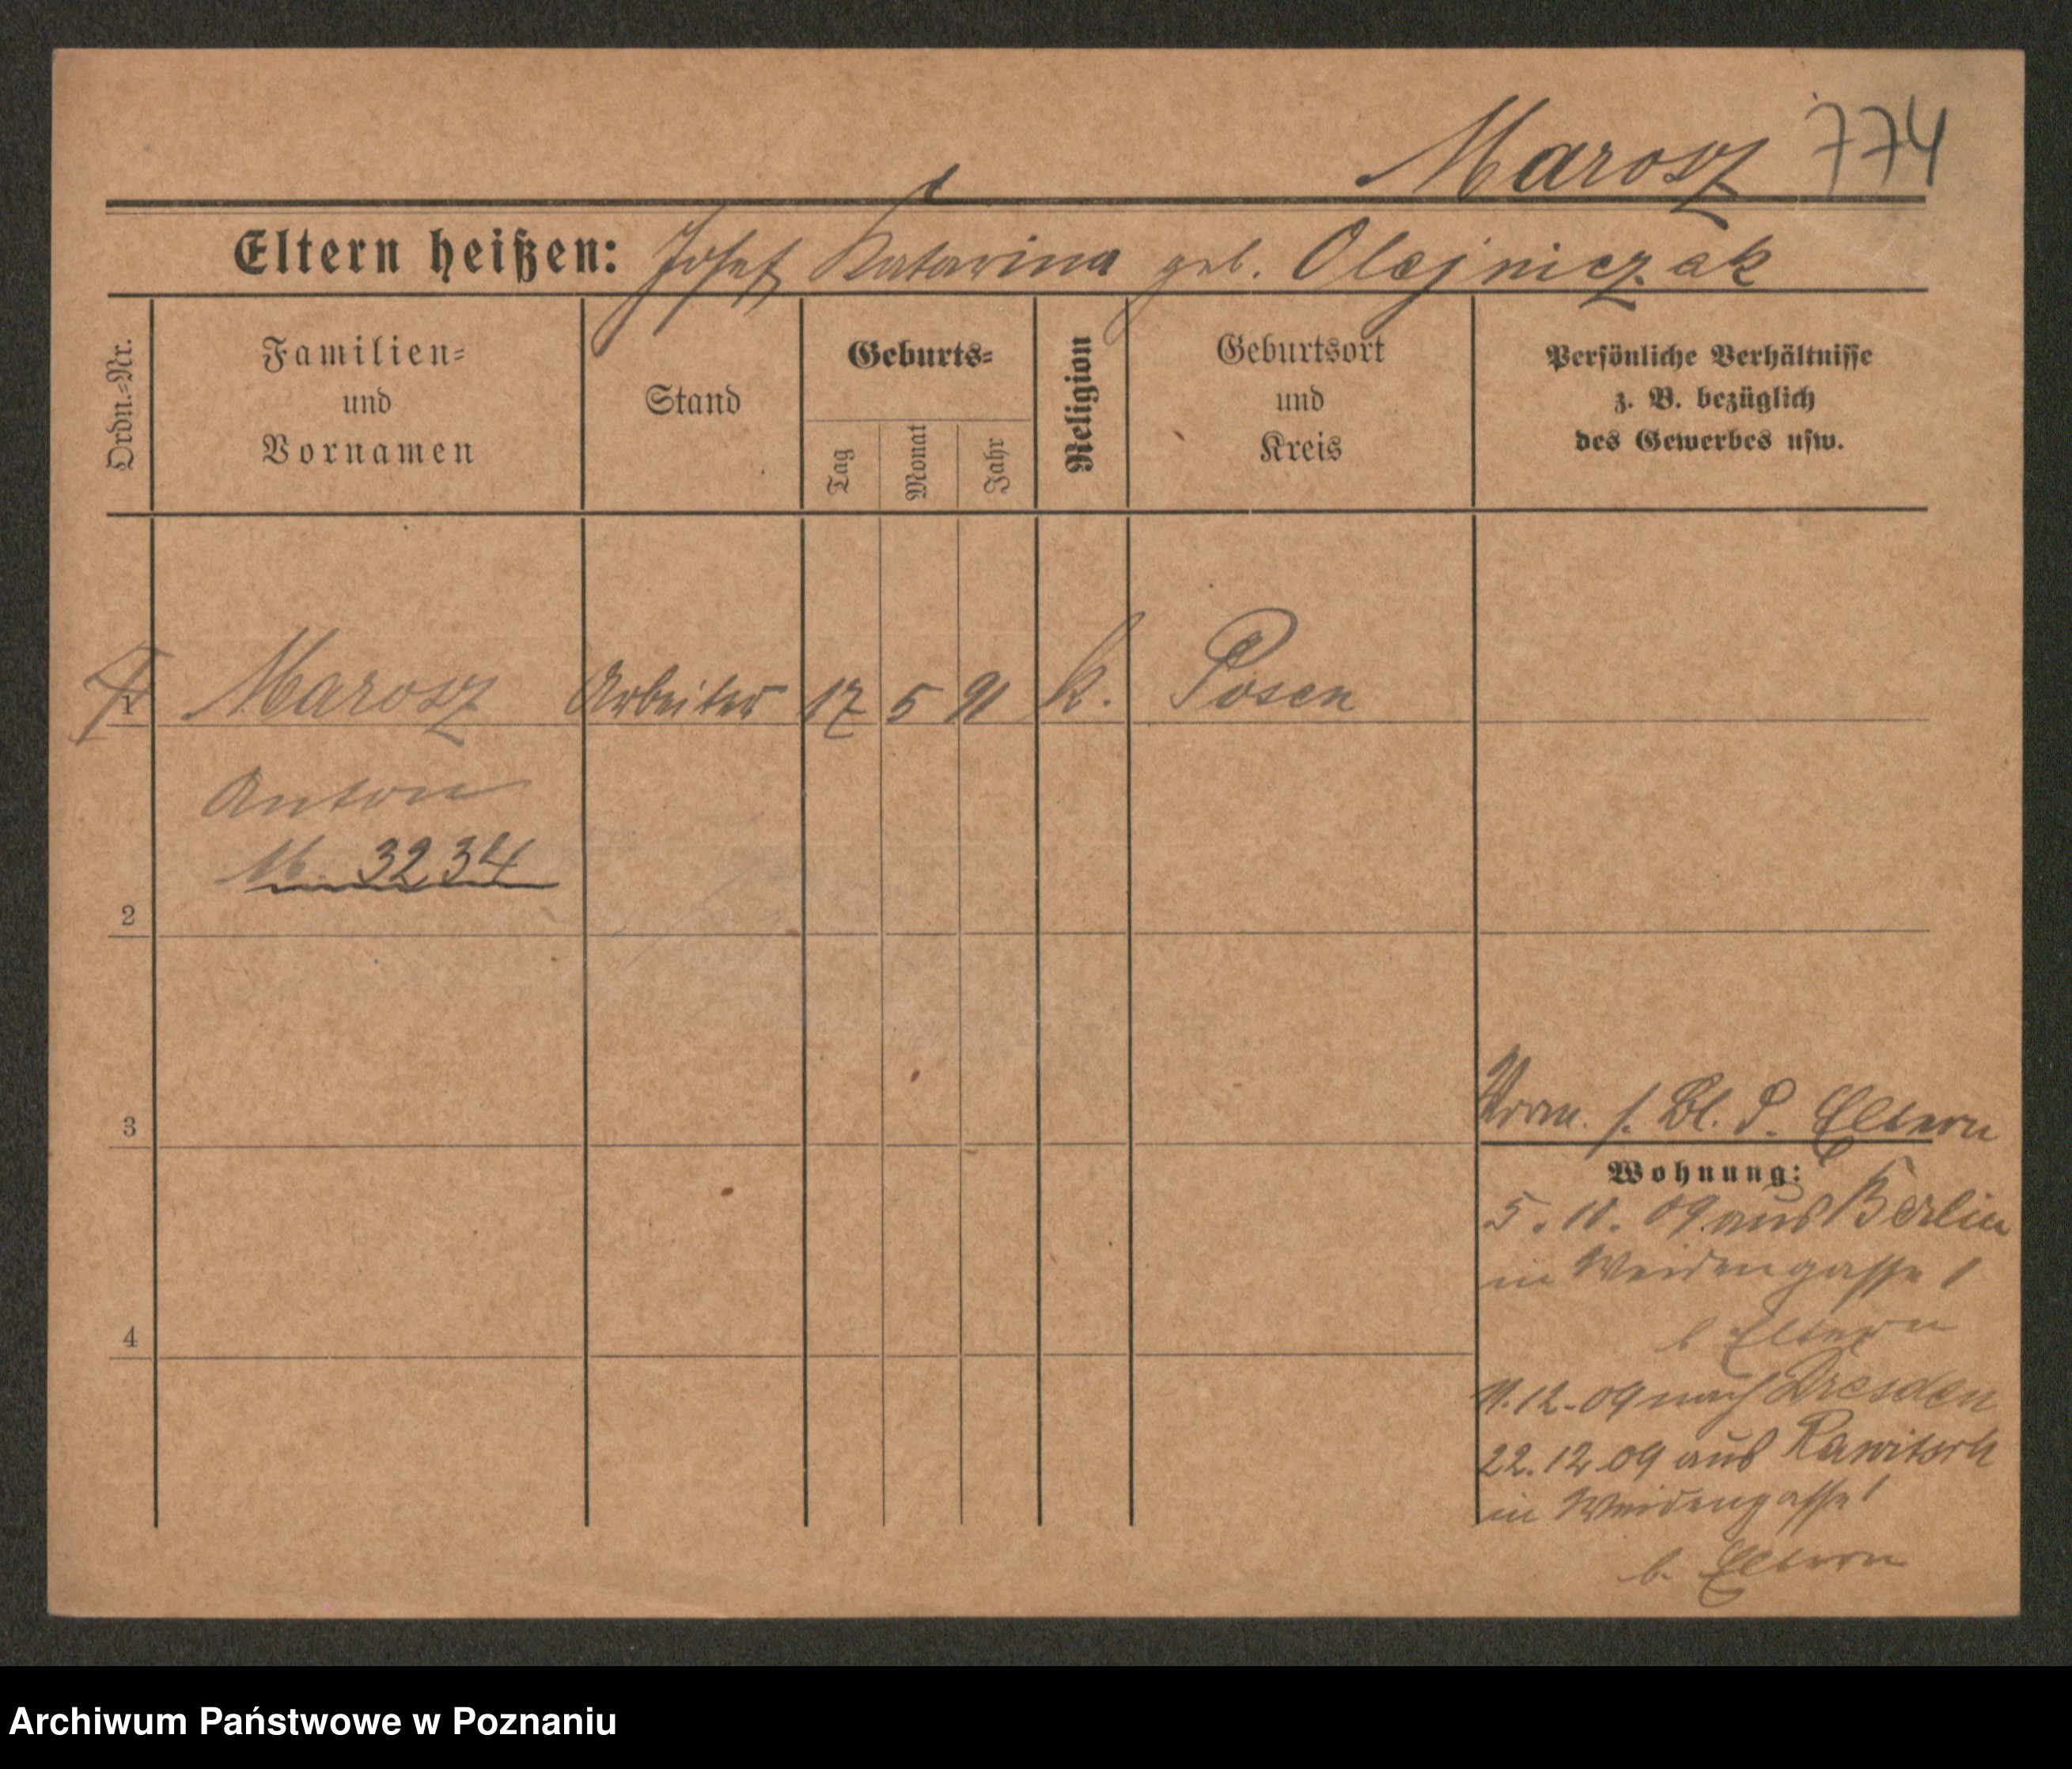 Marosz 774
Eltern heißen: Josef Katarina geb. Olejniczak
Ordn.=Nr.
Familien=
und
Vornamen
Stand
Geburts=
Tag
Monat
Jahr
Religion
Geburtsort
und
Kreis
Persönliche Verhältnisse
z. B. bezüglich
des Gewerbes usw.
1 Marosz Arbeiter 17 5 91 k. Posen
Anton
3234
2
3
4
f. Bl. d. Eltern
Wohnung:
5. 10. 09. aus Berlin
in Weidengasse 1
b Eltern
11.12.09 nach Dresden
22.12.09 aus Rawitsch
in Weidengasse 1
b. Eltern
Archiwum Państwowe w Poznaniu